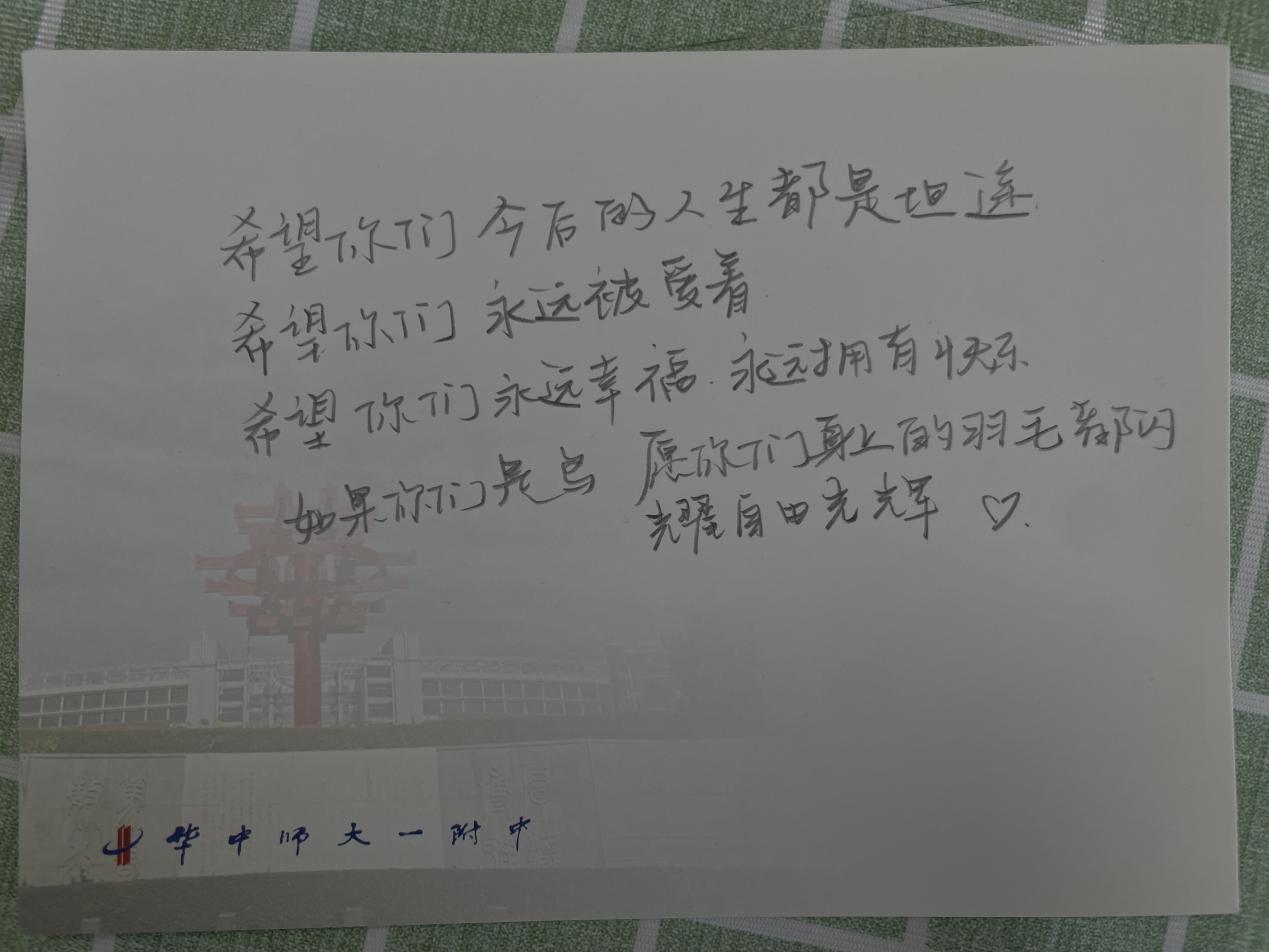 希望你们今后的人生都是坦途
希望你们永远被爱着
希望你们永远幸福.永远拥有快乐
如果你们是鸟 愿你们身上的羽毛都闪
耀自由光辉 ♡.
华中师大一附中